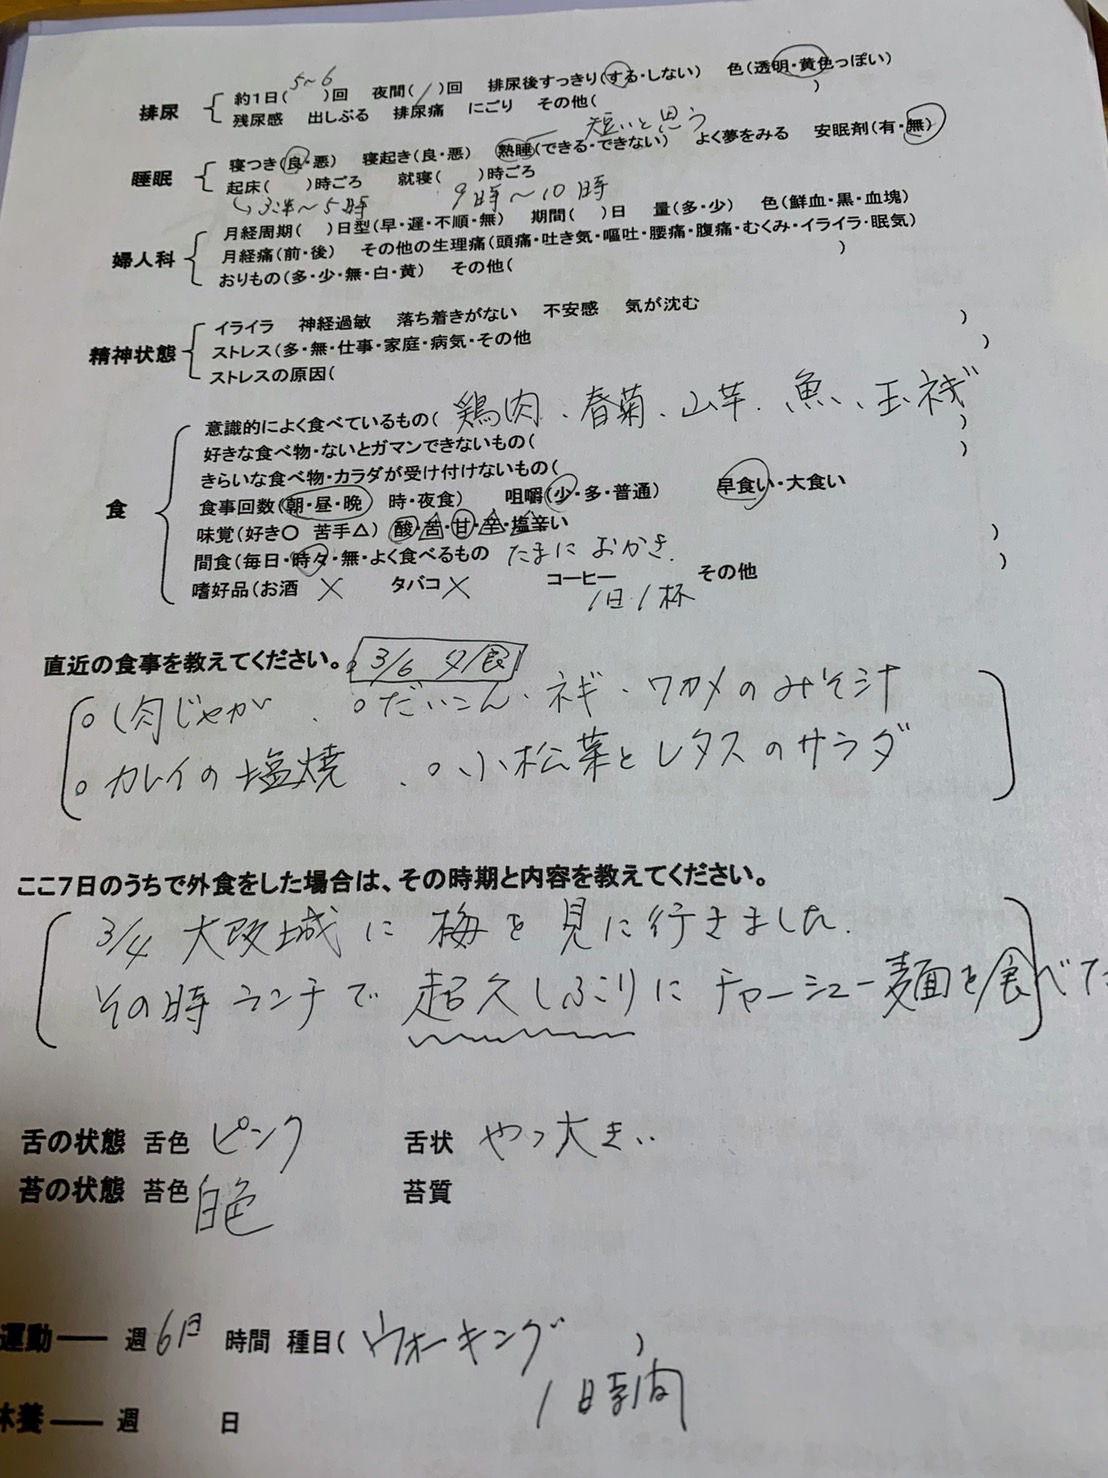 排尿 約1日( 5~6 )回 夜間( 1 )回 排尿後すっきり(する・しない) 色(透明・黄色っぽい)
残尿感 出しぶる 排尿痛 にごり その他( )
短いと思う
睡眠 寝つき(良・悪) 寝起き(良・悪) 熟睡(できる・できない) よく夢をみる 安眠剤(有・無)
起床( )時ごろ 就寝( )時ごろ
3時半~5時 9時~10時
婦人科 月経周期( )日型(早・遅・不順・無) 期間( )日 量(多・少) 色(鮮血・黒・血塊)
月経痛(前・後) その他の生理痛(頭痛・吐き気・嘔吐・腰痛・腹痛・むくみ・イライラ・眠気)
おりもの(多・少・無・白・黄) その他( )
精神状態 イライラ 神経過敏 落ち着きがない 不安感 気が沈む
ストレス(多・無・仕事・家庭・病気・その他 )
ストレスの原因( )
食 意識的によく食べているもの( 鶏肉、春菊、山芋、魚、玉ネギ )
好きな食べ物・ないとガマンできないもの( )
きらいな食べ物・カラダが受け付けないもの( )
食事回数(朝・昼・晩 時・夜食) 咀嚼(少・多・普通) 早食い・大食い
味覚(好き○ 苦手△) 酸・苦・甘・辛・塩辛い
間食(毎日・時々・無・よく食べるもの たまに おかき. )
嗜好品(お酒 × タバコ × コーヒー 1日1杯 その他 )
直近の食事を教えてください。 3/6 夕食
○肉じゃが 、○だいこん・ネギ・ワカメのみそ汁
○カレイの塩焼 、○小松菜とレタスのサラダ
ここ7日のうちで外食をした場合は、その時期と内容を教えてください。
3/4 大阪城に 梅を見に行きました.
その時ランチで 超久しぶりにチャーシュー麺を食べた
舌の状態 舌色 ピンク 舌状 やゝ大きい
苔の状態 苔色 白色 苔質
運動── 週6日 時間 種目( ウォーキング )
1時間
休養── 週 日